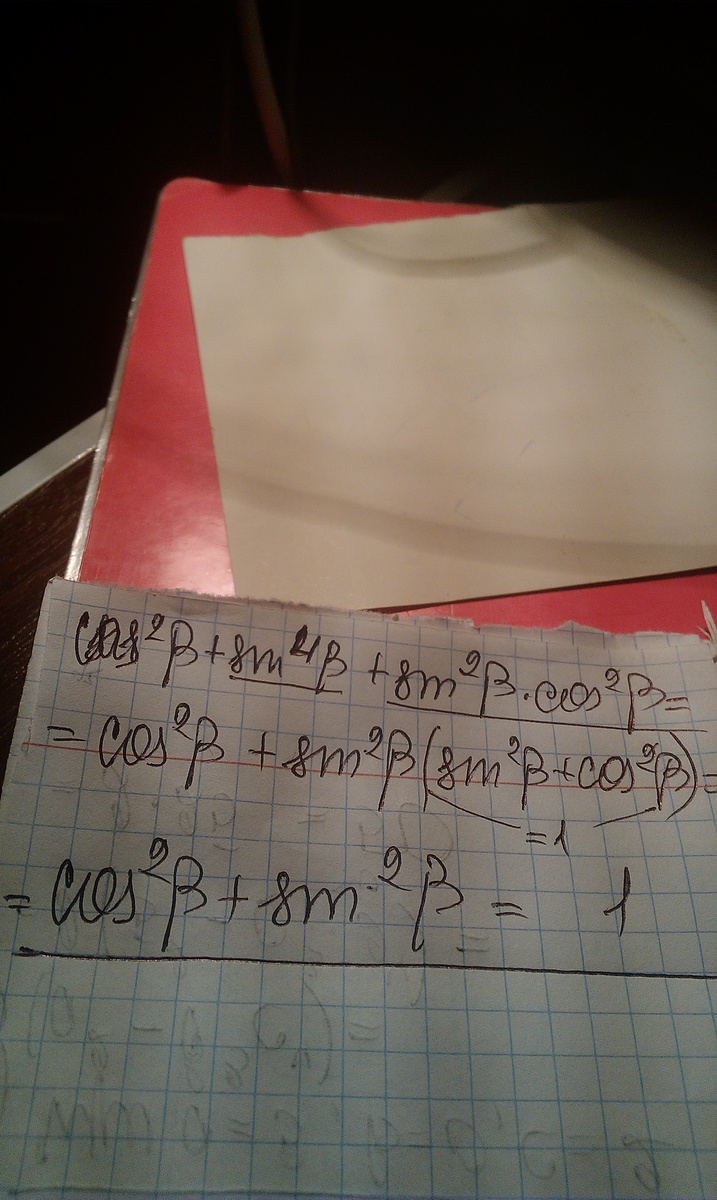 cos²β + sin⁴β + sin²β · cos²β =
= cos²β + sin²β (sin²β + cos²β) =
= 1
= cos²β + sin²β = 1